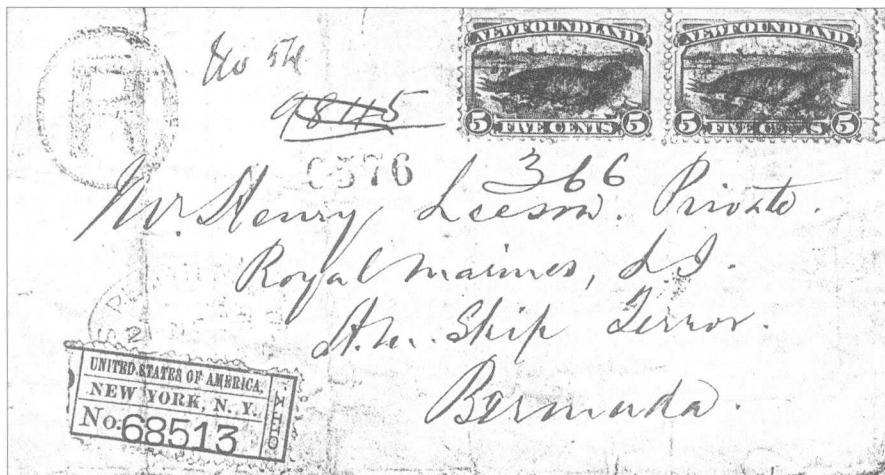 R
NEWFOUNDLAND NEWFOUNDLAND
5 FIVE CENTS 5 5 FIVE CENTS 5
No
9845
0576 366
Mr. Henry Leeson. Private.
Royal Marines, L I.
H.M. Ship Terror.
Bermuda.
UNITED STATES OF AMERICA.
NEW YORK, N.Y.
No. 68513